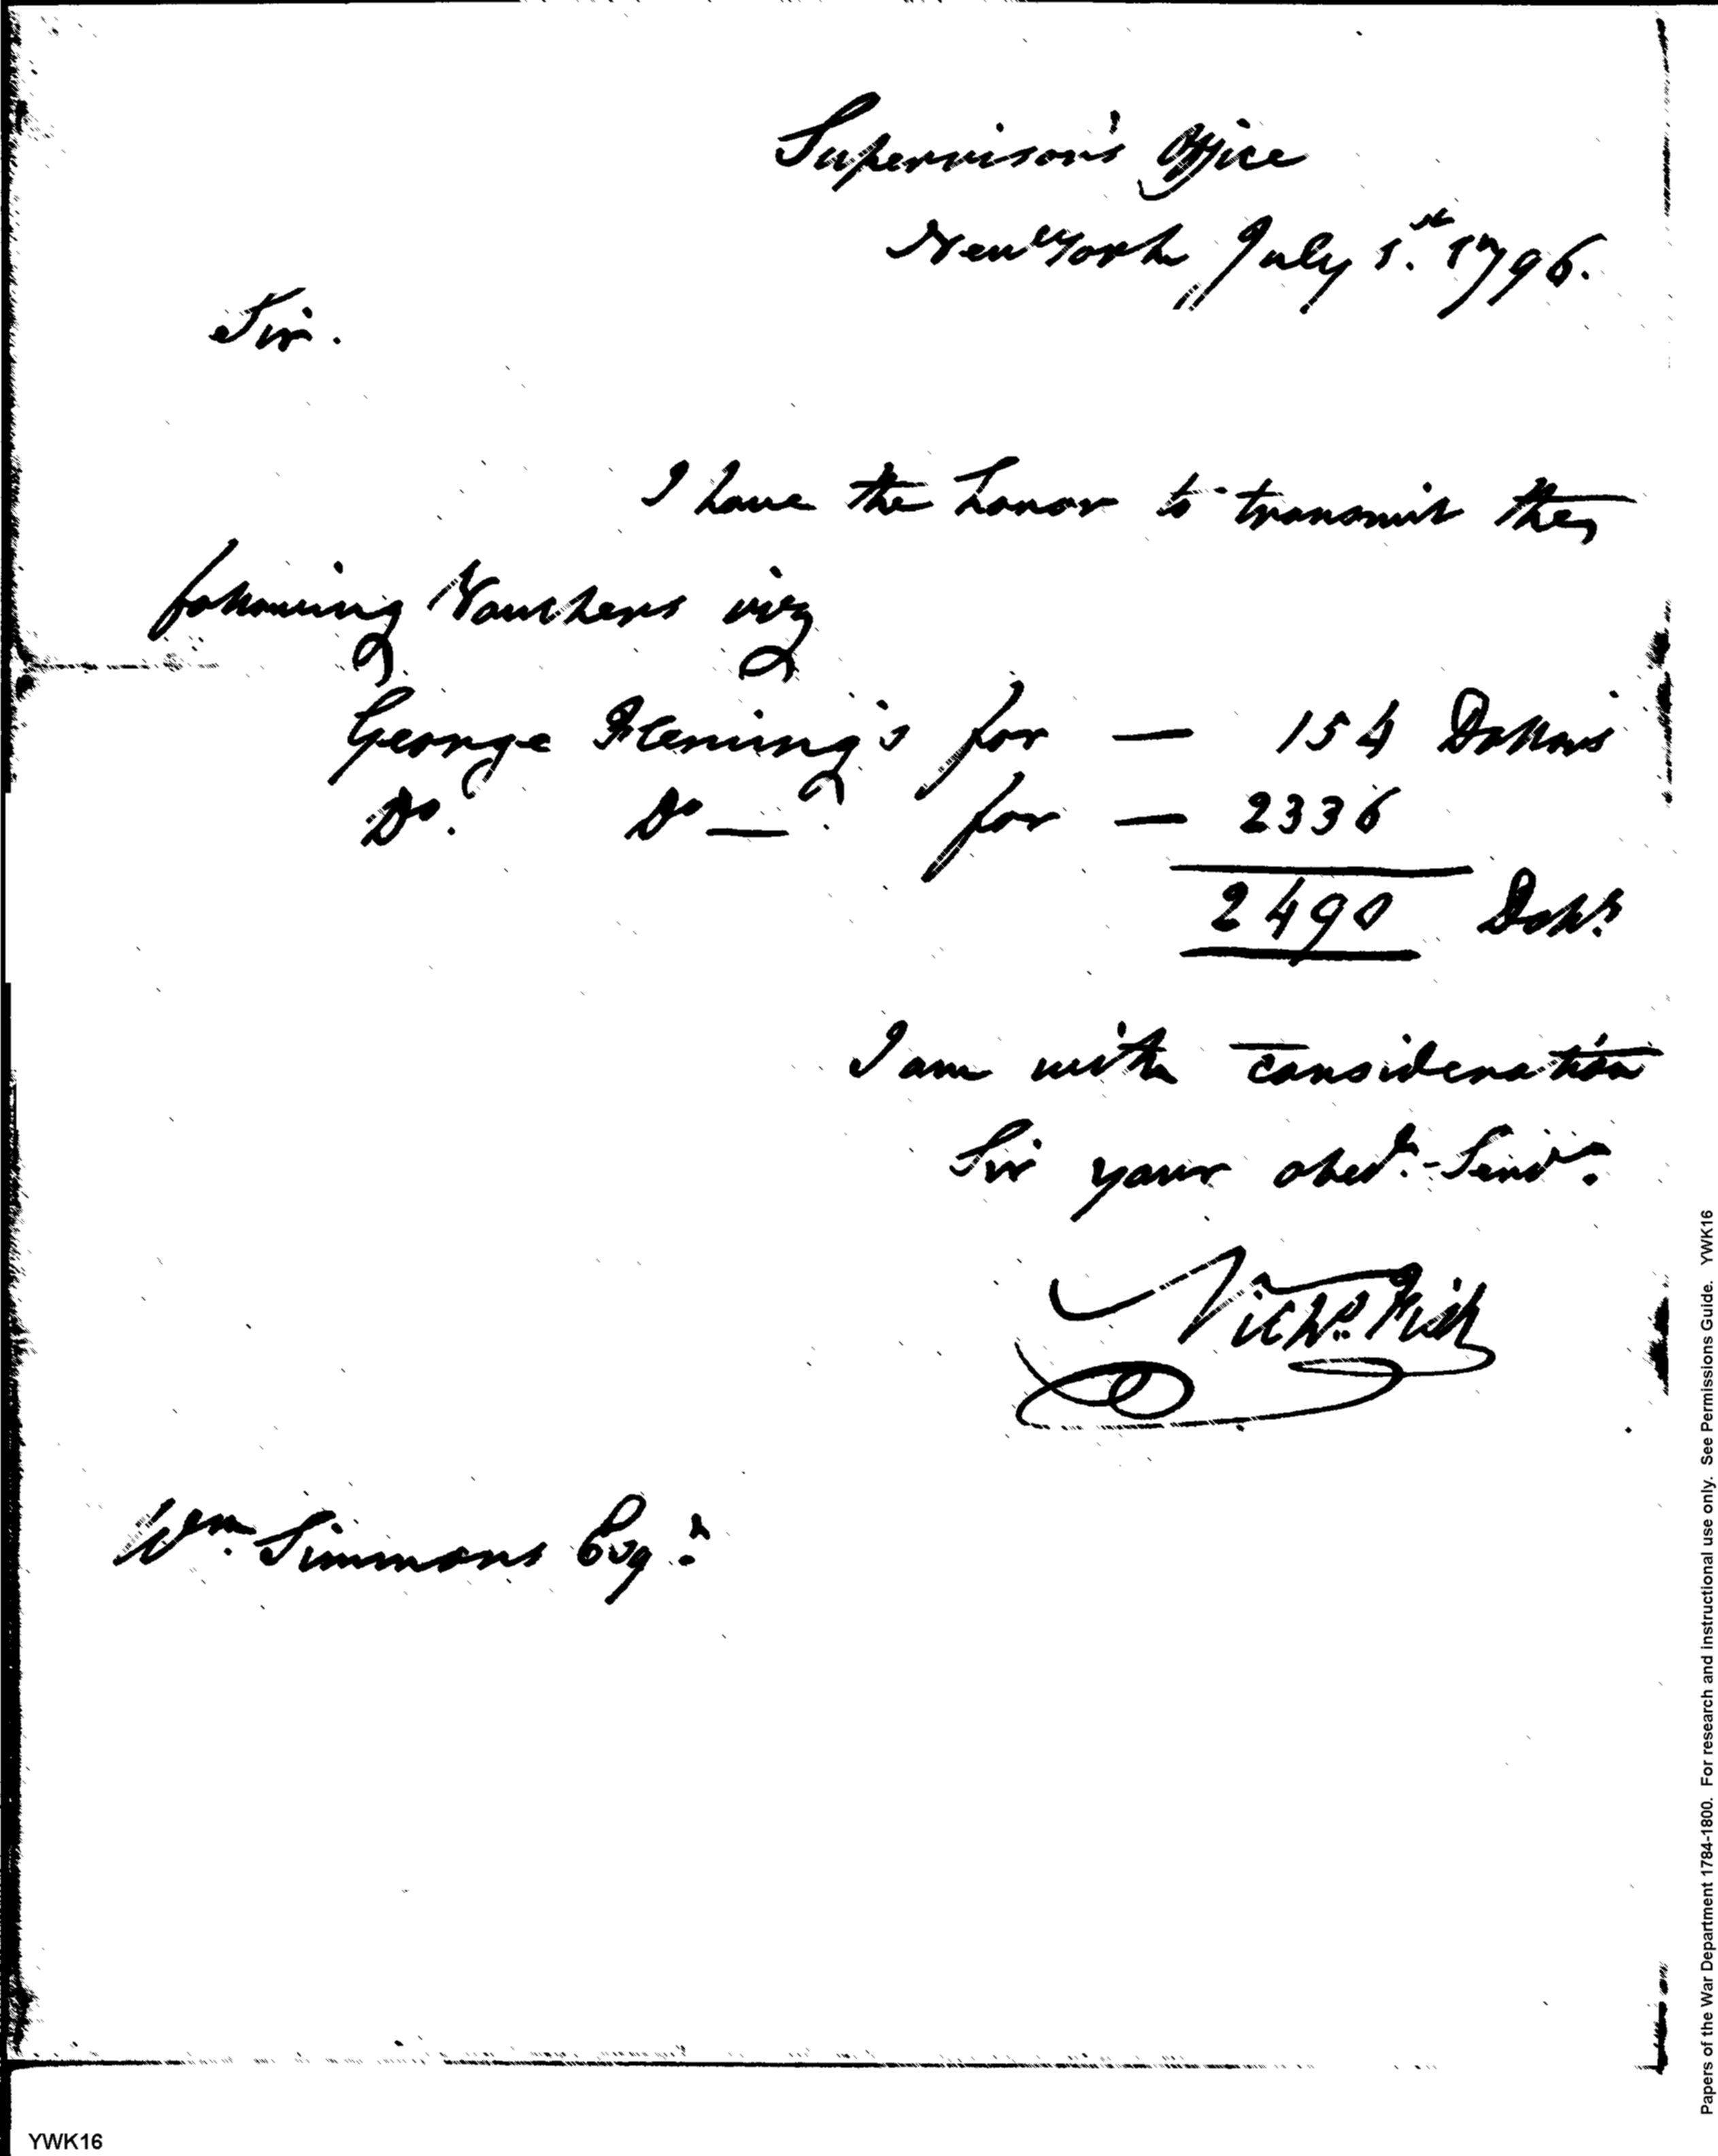 Supervisor's Office
New York July 1st 1796.
Sir.
I have the honor to transmit the
following Vouchers viz
George Fleming's for — 154 Dollars
Do. Do — for — 2336
2490 Dolls.
I am with consideration
Sir your obedt. Servt.
Nichs. Fish
Wm. Simmons Esqr.
YWK16
Papers of the War Department 1784-1800. For research and instructional use only. See Permissions Guide. YWK16